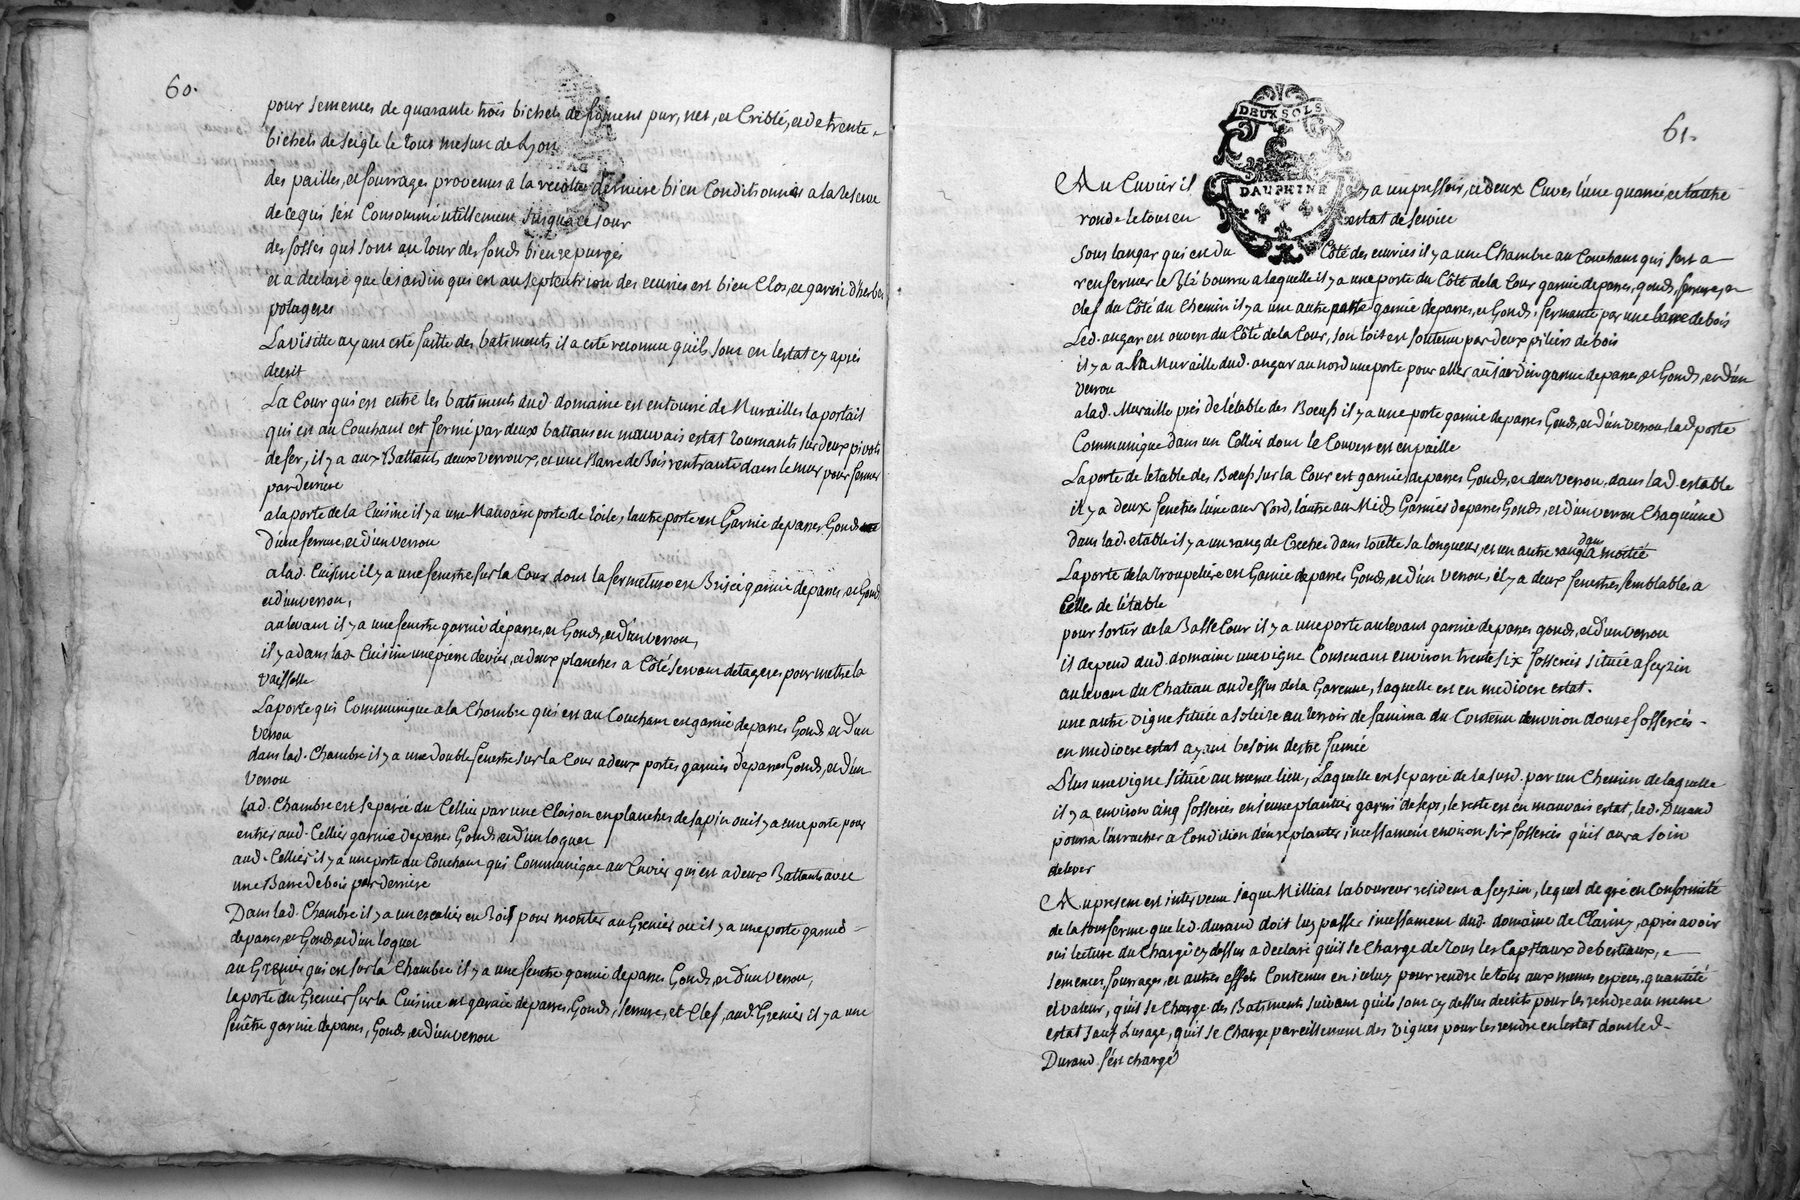 60.
pour semences de quarante trois bichets de froment pur, net, et Criblé, et de trente
bichets de seigle le tout mesure de Lyon
des pailles, et fourrages provenus a la recolte derniere bien Conditionnés a la reserve
de ce qui s'est Consommé utillement jusqu'a ce jour
des fosses qui sont au tour des fonds bien repurgés
et a declaré que le jardin qui est au septentrion des ecuries est bien Clos, et garni d'herbes
potageres
La visitte ayant esté faitte des batiments, il a esté reconnu quils sont en l'estat cy aprés
decrit
La Cour qui est entre les batiments dud domaine est entouré de Murailles la portail
qui est au Couchant est fermé par deux battans en mauvais estat tournants sur deux pivots
de fer, il y a aux Battants deux verroux, et une Barre de Bois rentrante dans le mur pour fermer
par derriere
a la porte de la Cuisine il y a une Mauvaise porte de toile, lautre porte est Garnie de panes Gonds
D'une serrure, et d'un verrou
a lad. Cuisine il y a une fenestre sur la Cour dont la fermeture est Brisé garnie de panes, et Gond
et d'un verrou,
au levant il y a une fenestre garnie de panes, et Gonds, et d'un verrou,
il y a dans lad. Cuisine une pierre devier, et deux planches a Côté servant detageres pour mettre la
vaisselle
La porte qui Communique a la Chambre qui est au Couchant est garnie de panes Gonds et d'un
verrou
dans lad. Chambre il y a une double fenestre sur la Cour a deux portes garnies de panes Gonds, et d'un
verrou
lad. Chambre est separée du Cellier par une Cloison en planches de sapin ou il y a une porte pour
entrer aud. Cellier garnie de panes Gonds et d'un loquet
aud. Cellier il y a une porte du Couchant qui Communique au Cuvier qui est a deux Battants avec
une Barre de bois par derriere
Dans lad. Chambre il y a un escalier en Bois pour monter au Grenier ou il y a une porte garnie
de panes, et Gonds, et d'un loquet
au Grenier qui est sur la Chambre il y a une fenetre garnie de panes Gonds, et d'un verrou,
la porte du Grenier sur la Cuisine est garnie de panes, Gonds, serrure, et Clef, aud. Grenier il y a une
fenêtre garnie de panes, Gonds, et d'un verrou
61.
DEUX SOLS
DAUPHINE
Au Cuvier il y a un pressoir, et deux Cuves l'une quarrée, et l'autre
ronde le tout en estat de service
Sous langar qui est du Côté des ecuries il y a une Chambre au Couchant qui sert a
renfermer le Blé bourru a laquelle il y a une porte du Côté de la Cour garnie de panes, gonds, serrure, et
clef du Côté du Chemin il y a une autre porte garnie de panes, et Gonds, fermante par une barre de bois
Led. angar est ouvert du Côté de la Cour, son toit est soutenu par deux piliers de bois
il y a a la Muraille dud. angar au nord une porte pour aller au jardin garnie de panes, et Gonds, et d'un
verrou
a lad. Muraille prés de l'étable des Boeufs il y a une porte garnie de panes Gonds, et d'un verrou, lad porte
Communique dans un Cellier dont le Couvert est en paille
La porte de letable des Boeufs sur la Cour est garnie de panes Gonds, et d'un verrou, dans lad. estable
il y a deux fenetres l'une au Nord, l'autre au Midy Garnies de panes Gonds, et d'un verrou Chaqu'une
Dans lad. etable il y a un rang de Creche dans toutte sa longueur, et un autre rang dans la moitié
La porte de la troupeliere est Garnie de panes Gonds, et d'un verrou, il y a deux fenestres semblables a
Celles de l'étable
pour sortir de la Basse Cour il y a une porte au levant garnie de panes gonds, et d'un verrou
il depend dud. domaine une vigne Contenant environ trente six fosserées située a feyzin
au levant du Chateau au dessus de la Garenne, laquelle est en mediocre estat.
une autre vigne située a soleize au terroir de [...] du Contenu denviron douze fosserées
en mediocre estat ayant besoin destre fumée
Plus une vigne située au meme lieu, Laquelle est separée de la susd. par un Chemin de laquelle
il y a environ cinq fosserées en jeune plantier garni de seps, le reste est en mauvais estat, led. Durand
pourra l'arracher a Condition d'en replanter incessament environ six fosserées qu'il aura soin
delever
Au present est intervenu jaque Milliat laboureur resident a feyzin, lequel de gré en Conformité
de la sousferme que led. durand doit luy passer incessament dud. domaine de Clariny, aprés avoir
oui lecture du Chargé cy dessus a declaré qu'il se Charge de tous les Capitaux de bestiaux, et
semences, fourrages, et autres effets Contenus en iceluy pour rendre le tout aux memes especes, quantité
et valeur, qu'il se Charge des Batiments suivant qu'ils sont cy dessus decrits pour les rendre au meme
estat sauf Lusage, qu'il se Charge pareillement des vignes pour les rendre en lestat dont led.
Durand s'est chargé